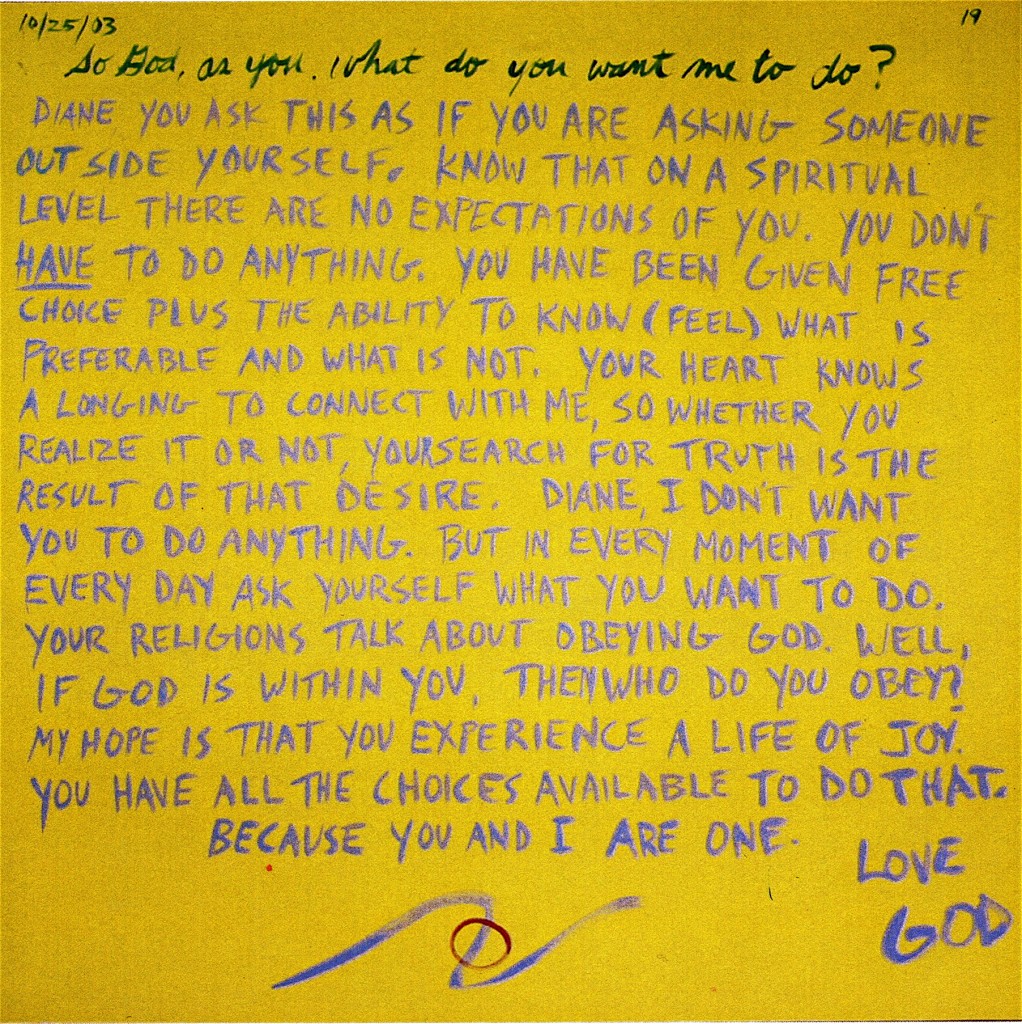 10/25/03 19
So God, as you. What do you want me to do?
DIANE YOU ASK THIS AS IF YOU ARE ASKING SOMEONE
OUTSIDE YOURSELF. KNOW THAT ON A SPIRITUAL
LEVEL THERE ARE NO EXPECTATIONS OF YOU. YOU DON'T
HAVE TO DO ANYTHING. YOU HAVE BEEN GIVEN FREE
CHOICE PLUS THE ABILITY TO KNOW (FEEL) WHAT IS
PREFERABLE AND WHAT IS NOT. YOUR HEART KNOWS
A LONGING TO CONNECT WITH ME, SO WHETHER YOU
REALIZE IT OR NOT, YOUR SEARCH FOR TRUTH IS THE
RESULT OF THAT DESIRE. DIANE, I DON'T WANT
YOU TO DO ANYTHING. BUT IN EVERY MOMENT OF
EVERY DAY ASK YOURSELF WHAT YOU WANT TO DO.
YOUR RELIGIONS TALK ABOUT OBEYING GOD. WELL,
IF GOD IS WITHIN YOU, THEN WHO DO YOU OBEY?
MY HOPE IS THAT YOU EXPERIENCE A LIFE OF JOY.
YOU HAVE ALL THE CHOICES AVAILABLE TO DO THAT.
BECAUSE YOU AND I ARE ONE.
LOVE
GOD